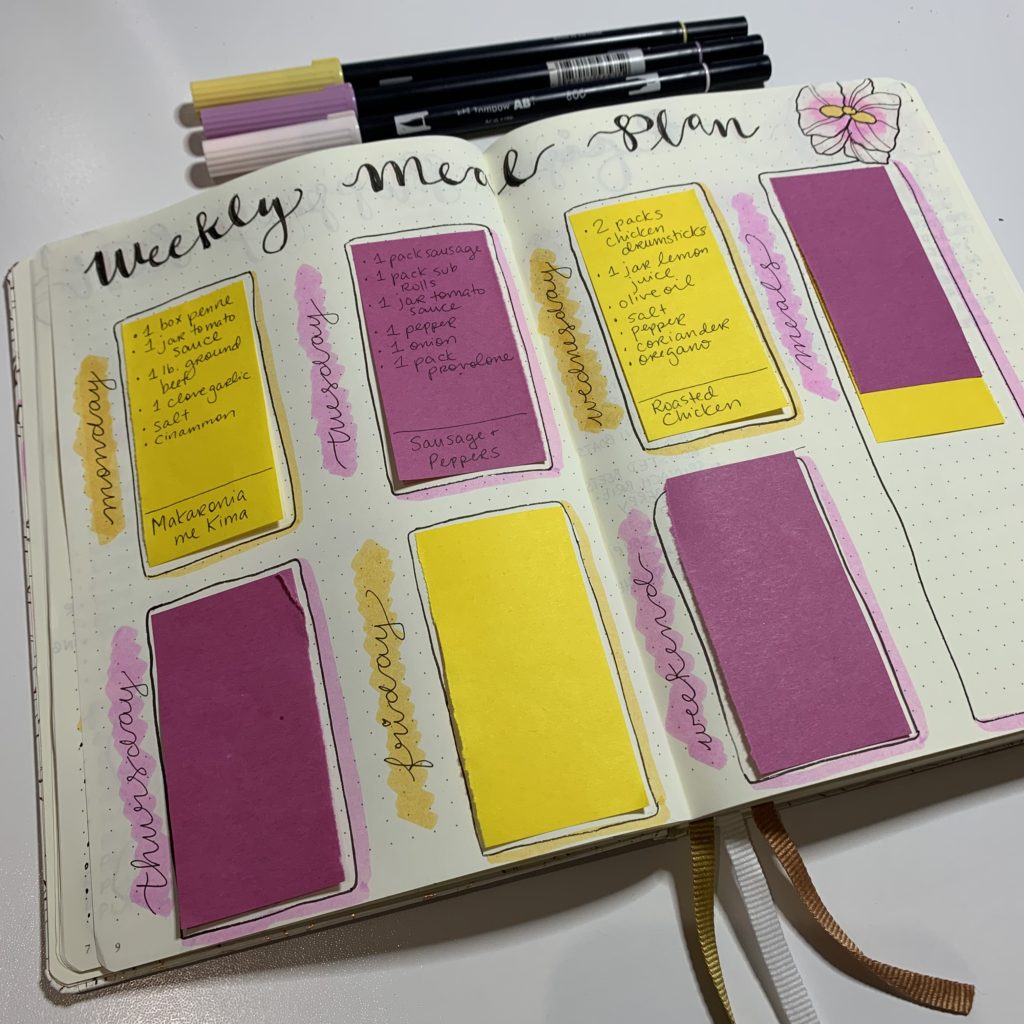 Weekly Meal Plan
monday
• 1 box penne
• 1 jar tomato
sauce
• 1 lb. ground
beef
• 1 clove garlic
• salt
• cinammon
Makaronia
me Kima
tuesday
• 1 pack sausage
• 1 pack sub
rolls
• 1 jar tomato
sauce
• 1 pepper
• 1 onion
• 1 pack
provolone
Sausage +
Peppers
wednesday
• 2 packs
chicken
drumsticks
• 1 jar lemon
juice
• olive oil
• salt
pepper
coriander
• oregano
Roasted
Chicken
meals
thursday
friday
weekend
Tombow AB
606
7 9